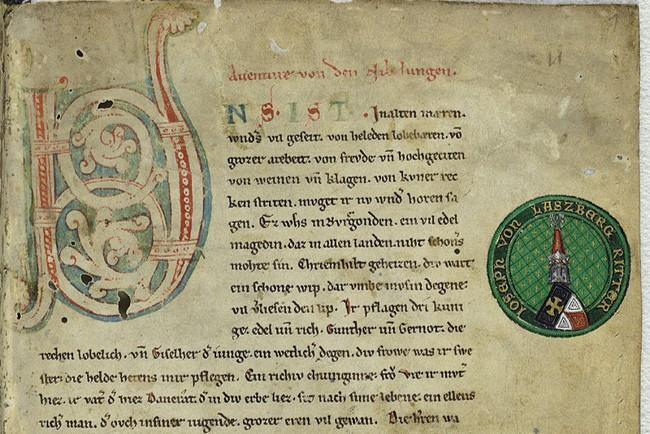 Auenture von den Nibelungen.
VNS IST. Inalten mæren.
wnd's vil geseit. von heleden lobebæren. vō
grozer arebeit. von frevde vn̄ hochgeciten
von weinen vn̄ klagen. von kvner rec
ken striten. mvget ir nv wnd' horen sa
gen. Ez whs inBvrgonden. ein vil edel
magedin. daz in allen landen. niht schoners
mohte sin. Chriemhilt geheizen. div wart
ein schone wip. dar vmbe mvsin degene.
vil v'liesen den lip. Ir pflagen dri kuni
ge. edel vn̄ rich. Gunther vn̄ Gernot. die
rechen lobelich. vn̄ Giselher d' iunge. ein wetlich' degen. div frowe was ir swe
ster. die helde hetens inir pflegen. Ein richiv chuniginne. frō Vte ir mvt'
hiez. ir vat' d' hiez Dancrat. d' in div erbe liez. sit nach sime lebene. ein ellens
rich man. d' ovch insiner iugende. grozer eren vil gewan. Die h'ren wa
IOSEPH VON LASZBERG RITTER